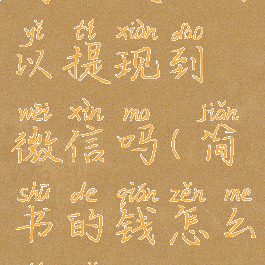 yǐ tí xiàn dào
以提现到
wēi xìn ma jiǎn
微信吗(简
shū de qián zěn me
书的钱怎么